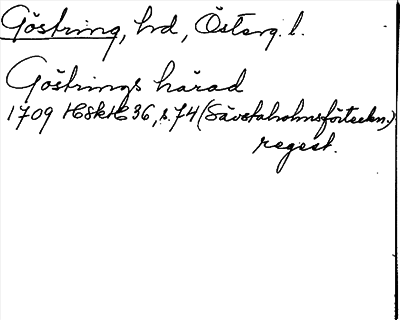 Göstring, hrd, Österg. l.
Göstrings härad
1709 HSkH 36, s. 74 (Sävstaholmsförteckn.)
regest.